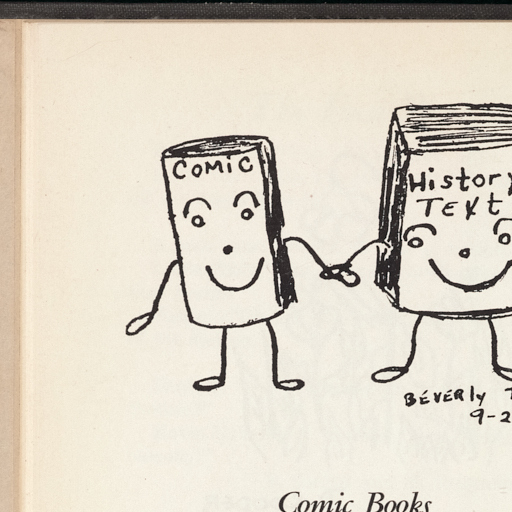 COMIC
History
TEXt
BEVERly T
9-2
Comic Books